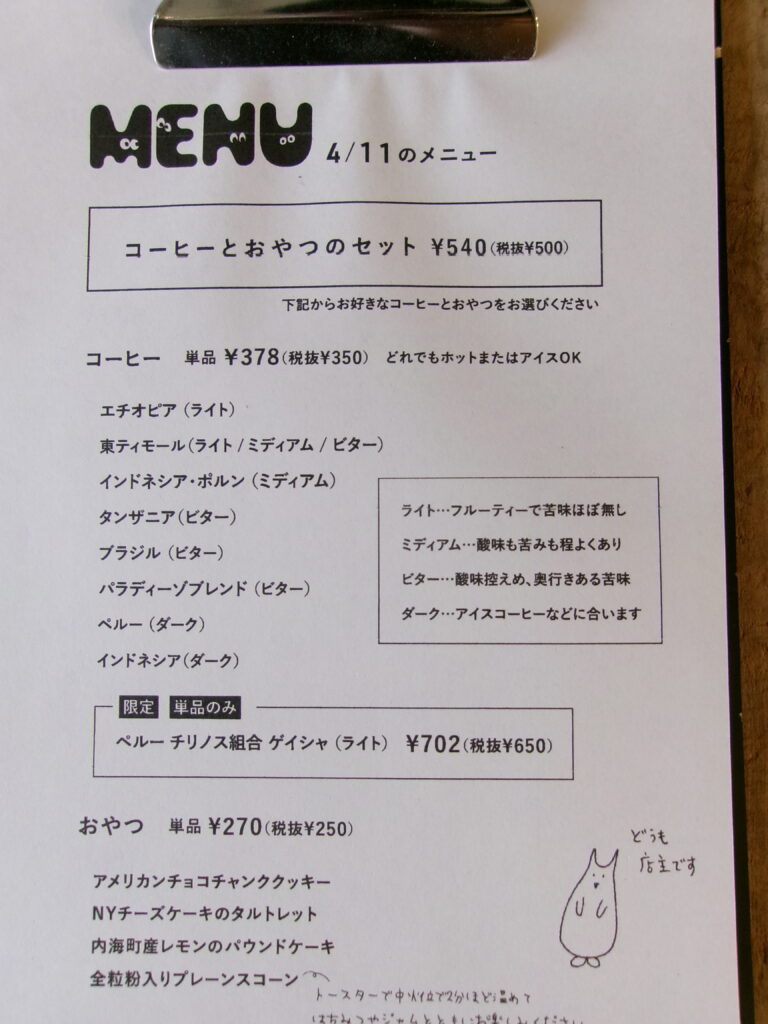 MENU 4/11のメニュー
コーヒーとおやつのセット ¥540(税抜¥500)
下記からお好きなコーヒーとおやつをお選びください
コーヒー 単品 ¥378(税抜¥350) どれでもホットまたはアイスOK
エチオピア(ライト)
東ティモール(ライト / ミディアム / ビター)
インドネシア・ポルン(ミディアム)
タンザニア(ビター)
ブラジル(ビター)
パラディーゾブレンド(ビター)
ペルー(ダーク)
インドネシア(ダーク)
ライト…フルーティーで苦味ほぼ無し
ミディアム…酸味も苦みも程よくあり
ビター…酸味控えめ、奥行きある苦味
ダーク…アイスコーヒーなどに合います
限定 単品のみ
ペルー チリノス組合 ゲイシャ(ライト) ¥702(税抜¥650)
おやつ 単品 ¥270(税抜¥250)
アメリカンチョコチャンククッキー
NYチーズケーキのタルトレット
内海町産レモンのパウンドケーキ
全粒粉入りプレーンスコーン
どうも
店主です
トースターで中火位で2分ほど温めて
はちみつやジャムとともにお楽しみください